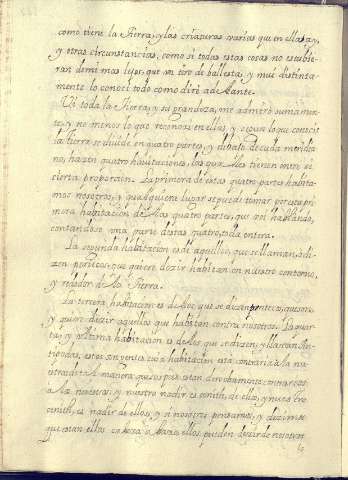 como tiene la Tierra, y las criaturas varias que en ella ay,
y otras circunstancias, como si todas estas cosas no estubie
ran de mi mas lejos, que un tiro de ballesta, y mui distinta
mente lo conoci todo como diré adelante.
Vi toda la tierra, y su grandeza, me admiró sumamen
te, y no menos lo que reconosi en ella, y segun lo que conosci
la tierra se divide en quatro partes, y debajo de cada meridia
no, hazen quatro habitaciones, las quales tienen entre si
cierta proporcion. La primera de estas quatro partes habita
mos nosotros, y qualquiera lugar se puede tomar por esta pri
mera habitacion de las quatro partes, que assi hablando,
contandose una parte destas quatro, toda entera.
La segunda habitacion es de aquellos, que se llaman, o di
zen periecos, que quiere dezir habitan en nuestro contorno,
y rededor de la Tierra.
La tercera habitacion es de los, que se dizen antecos, que son,
y quiere dezir aquellos que habitan contra nosotros. La quar
ta, y ultima habitacion es de los que se dizen, y llaman An
tipodas, estos
su habitacion esta contraria a la nu
estra de tal manera que sus pies estan derechamente contrarios
a los nuestros: y nuestro nadir es zenith de ellos, y nuestro
zenith, es nadir de ellos, y si nosotros pensamos, y dezimos
que estan ellos cabeza a baxo, ellos pueden dezir de nosotros